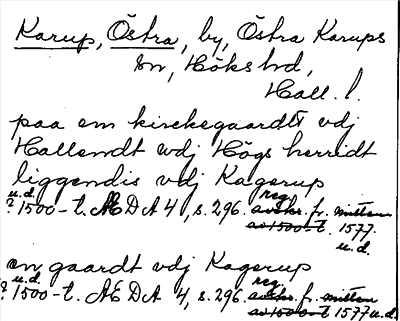 Karup, Östra, by, Östra Karups
sn, Höks hd,
Hall. l.
paa em kirckegaardtt vdj
Hallandt wdj Högs herridt
liggendis vdj Kagerup
u.d. reg.
? 1500-t. ÆDA 4, s. 296. avskr. fr. mitten
av 1500-t. 1577.
u.d.
en gaardt vdj Kagerup
u.d. reg.
? 1500-t. ÆDA 4, s. 296. avskr. fr. mitten
av 1500-t. 1577 u.d.